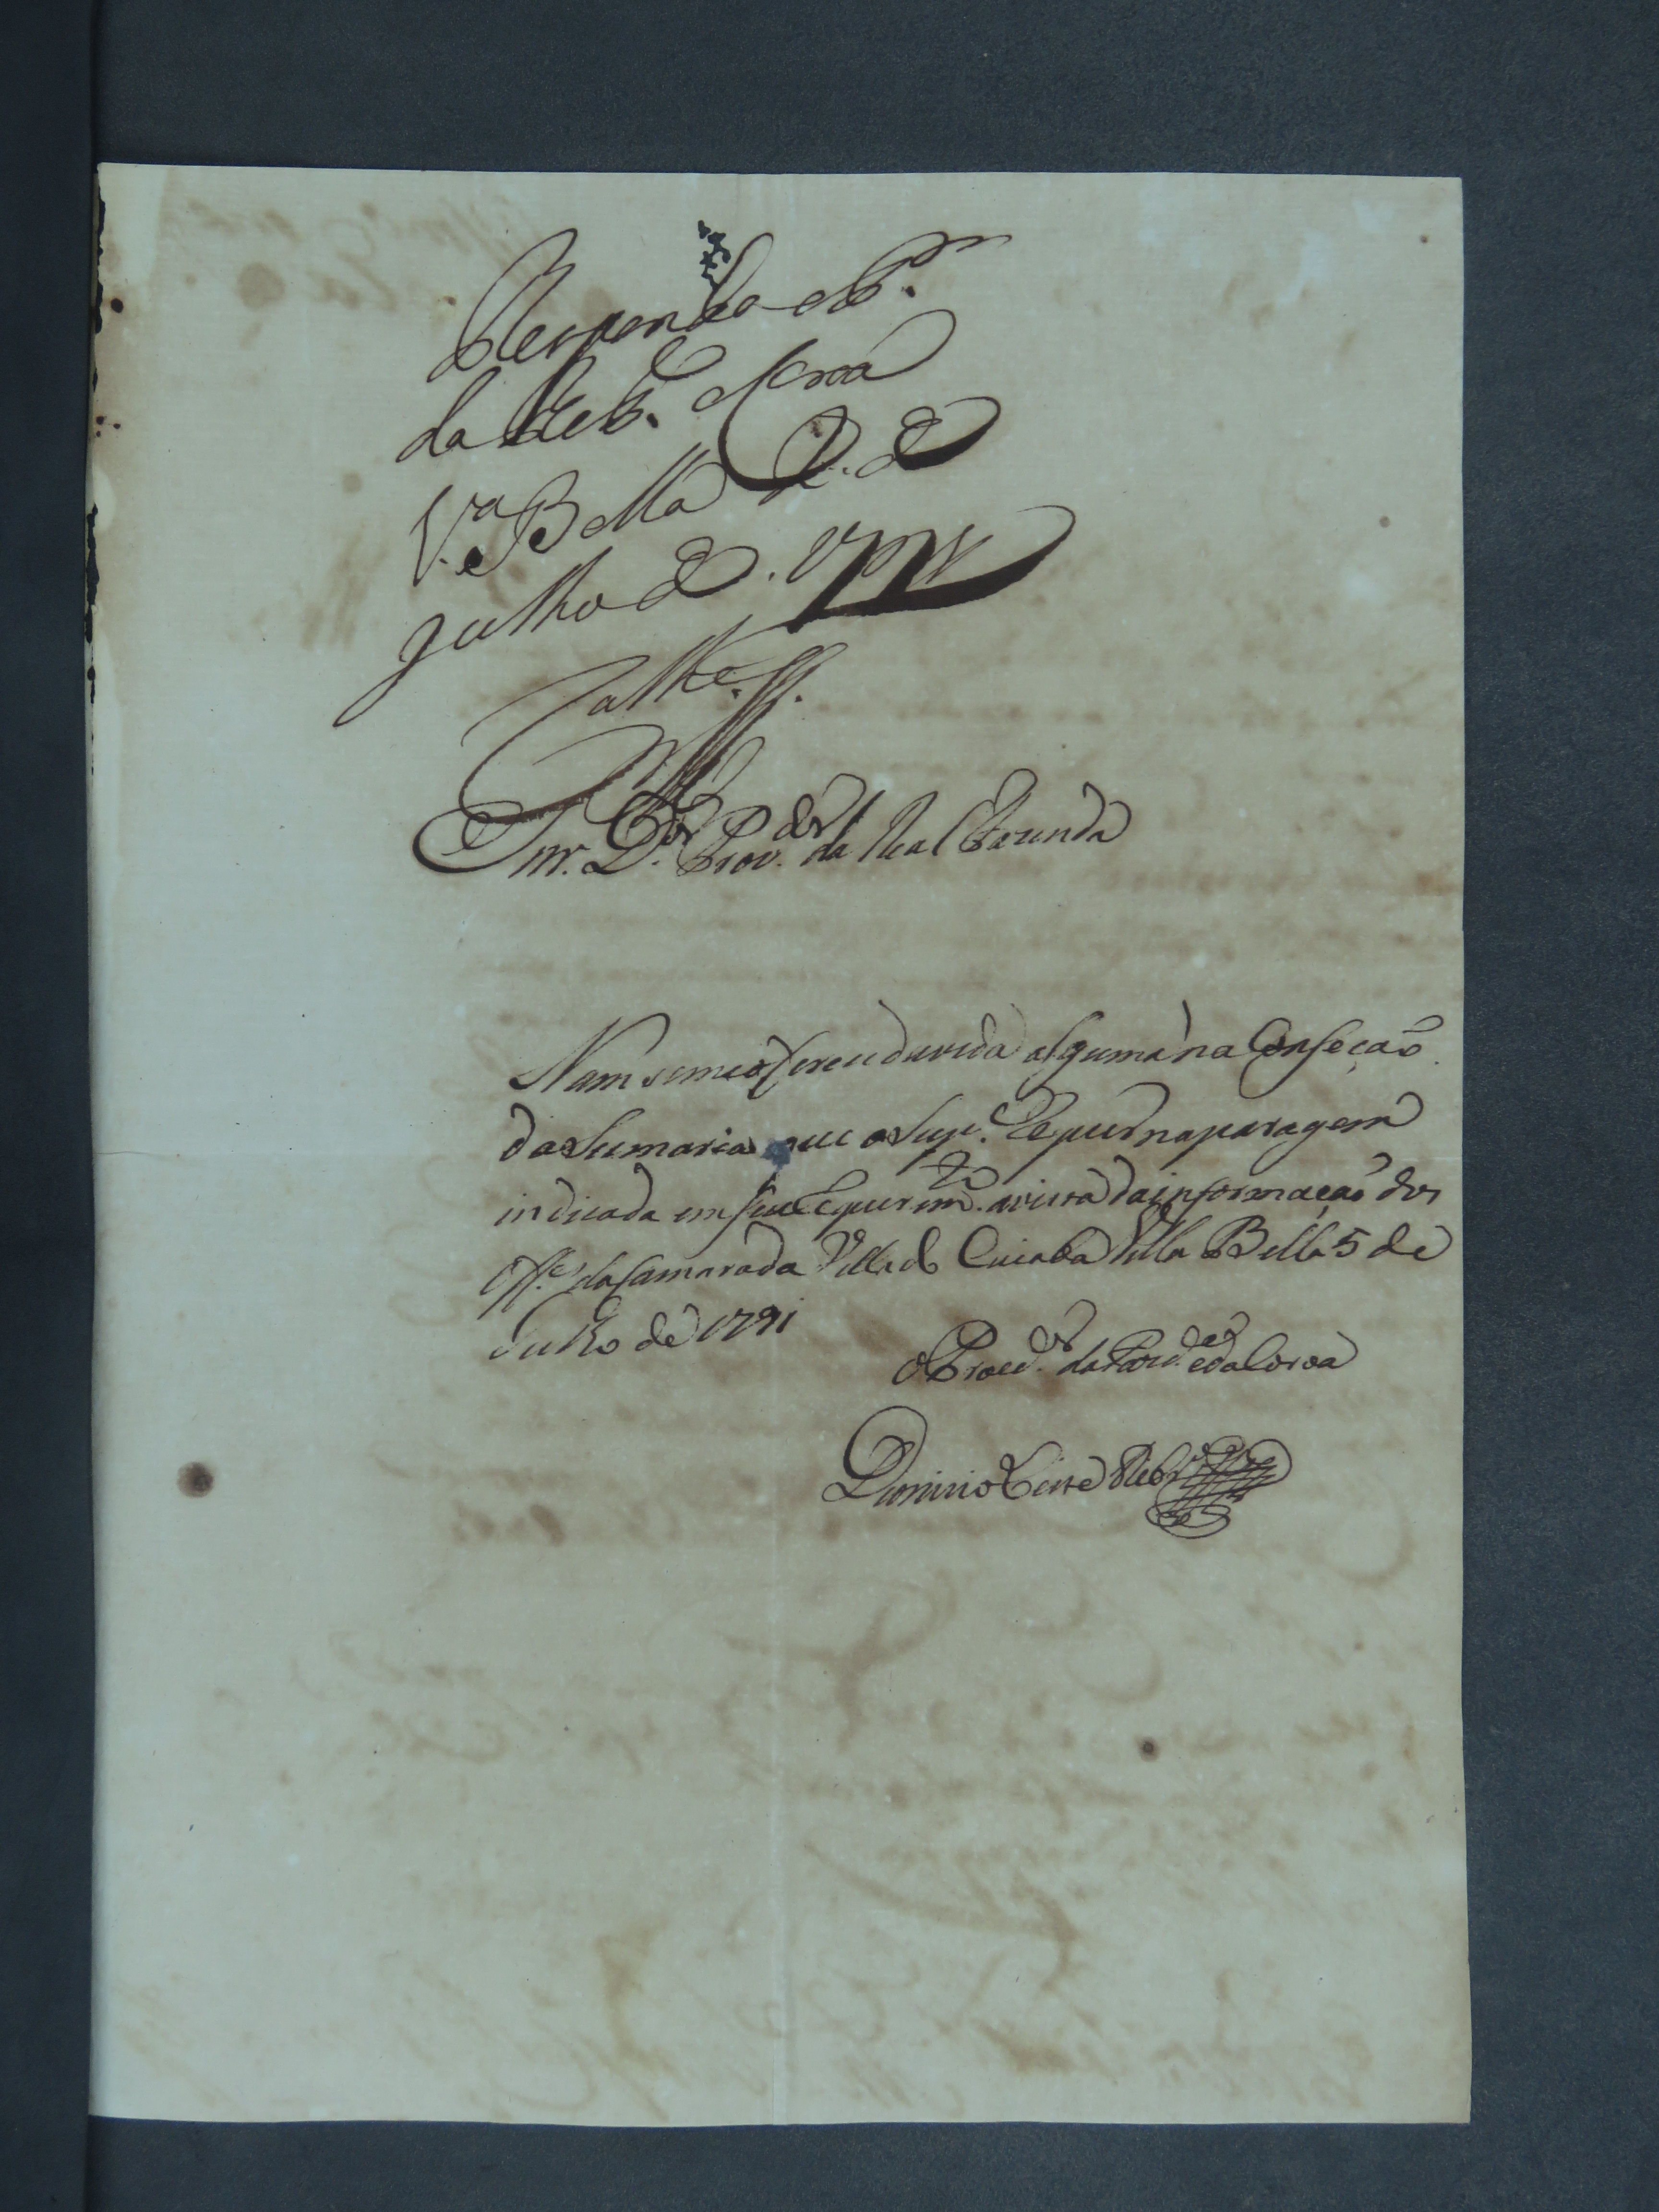 Responda o P.or
da Faz.da e Coroa
V.a Bella 2. de
Julho de. 1791
Snr. D.or Prov.dor da Real Fazenda
Nam se me oferece duvida alguma na Confecaõ
da Sumaria que o Sup.e Requer na paragem
indicada em seu Requerim.to avista da informaçaõ dos
Off.es da Camara da Villa do Cuiaba Villa Bella 5 de
Julho de 1791
O Procd.or da Fazd.a e da Coroa
Dionizio Leite Rebr.o